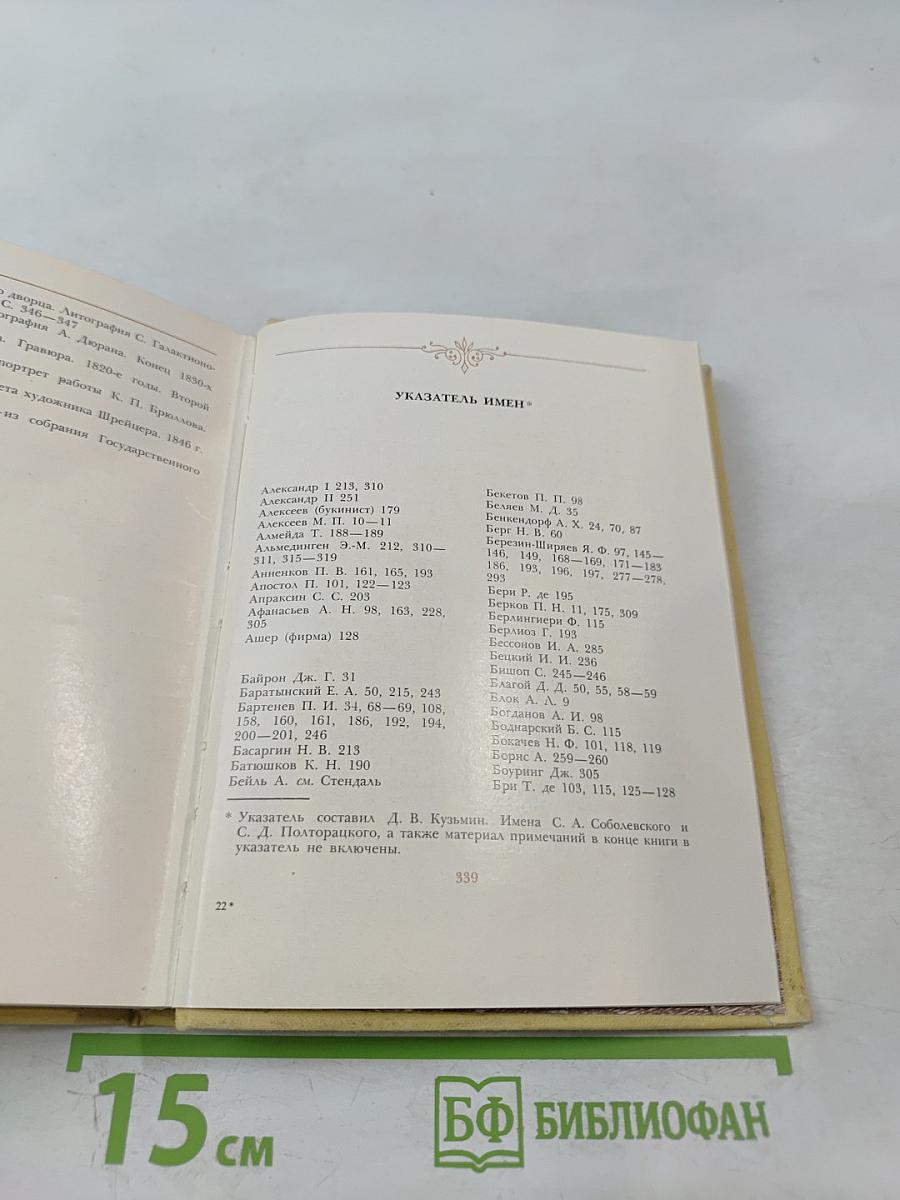 о дворца. Литография С. Галактионо-
С. 346—347
ография А. Дюрана. Конец 1830-х
Гравюра. 1820-е годы. Второй
портрет работы К. П. Брюллова.
ета художника Шрейцера. 1846 г.
из собрания Государственного
УКАЗАТЕЛЬ ИМЕН*
Александр I 213, 310
Александр II 251
Алексеев (букинист) 179
Алексеев М. П. 10—11
Алмейда Т. 188—189
Альмединген Э.-М. 212, 310—
311, 315—319
Анненков П. В. 161, 165, 193
Апостол П. 101, 122—123
Апраксин С. С. 203
Афанасьев А. Н. 98, 163, 228,
305
Ашер (фирма) 128
Байрон Дж. Г. 31
Баратынский Е. А. 50, 215, 243
Бартенев П. И. 34, 68—69, 108,
158, 160, 161, 186, 192, 194,
200—201, 246
Басаргин Н. В. 213
Батюшков К. Н. 190
Бейль А. см. Стендаль
Бекетов П. П. 98
Беляев М. Д. 35
Бенкендорф А. Х. 24, 70, 87
Берг Н. В. 60
Березин-Ширяев Я. Ф. 97, 145—
146, 149, 168—169, 171—183
186, 193, 196, 197, 277—278,
293
Бери Р. де 195
Берков П. Н. 11, 175, 309
Берлингиери Ф. 115
Берлиоз Г. 193
Бессонов И. А. 285
Бецкий И. И. 236
Бишоп С. 245—246
Благой Д. Д. 50, 55, 58—59
Блок А. Л. 9
Богданов А. И. 98
Боднарский Б. С. 115
Бокачев Н. Ф. 101, 118, 119
Борис А. 259—260
Боуринг Дж. 305
Бри Т. де 103, 115, 125—128
* Указатель составил Д. В. Кузьмин. Имена С. А. Соболевского и
С. Д. Полторацкого, а также материал примечаний в конце книги в
указатель не включены.
339
22*
15 см
БФ БИБЛИОФАН